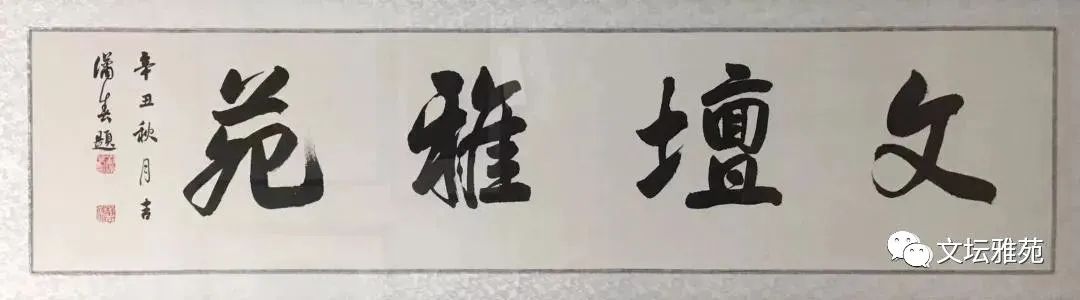 文壇雅苑
辛丑秋月吉
潘春題
文坛雅苑